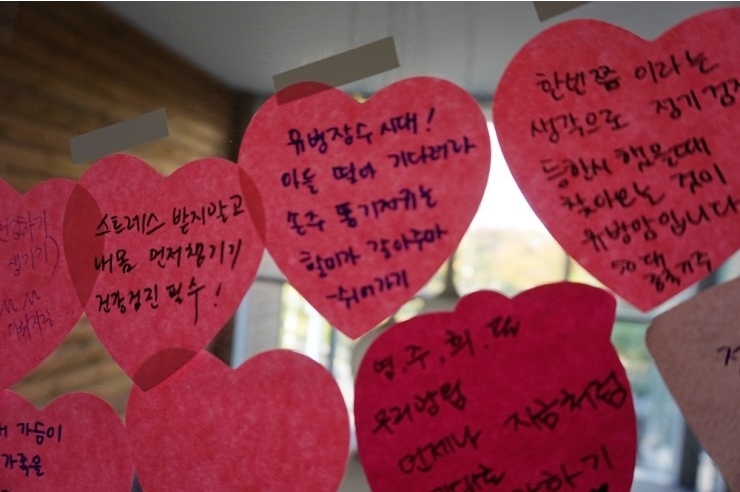 스트레스 받지말고
내몸 먼저챙기기
건강검진 필수!
유병장수 시대!
아들 딸아 기다려라
손주 똥기저귀는
할미가 갈아주마
-쉬어가기
한번쯤 이라는
생각으로 정기검진
등한시 했을때
찾아오는 것이
유방암입니다
50대
영.주.희.
우리방팀
언제나 지금처럼
하기
가슴이
가족을